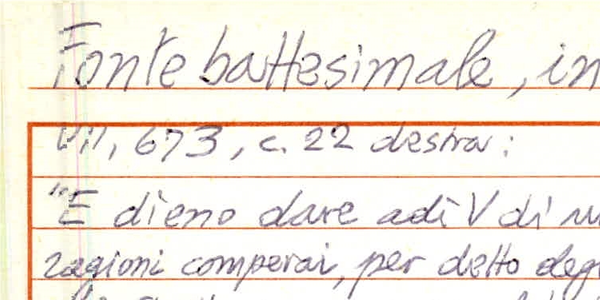 Fonte battesimale, in
VII, 673, c. 22 destra:
"E dieno dare adì V di
ragioni comperai, per detto degl